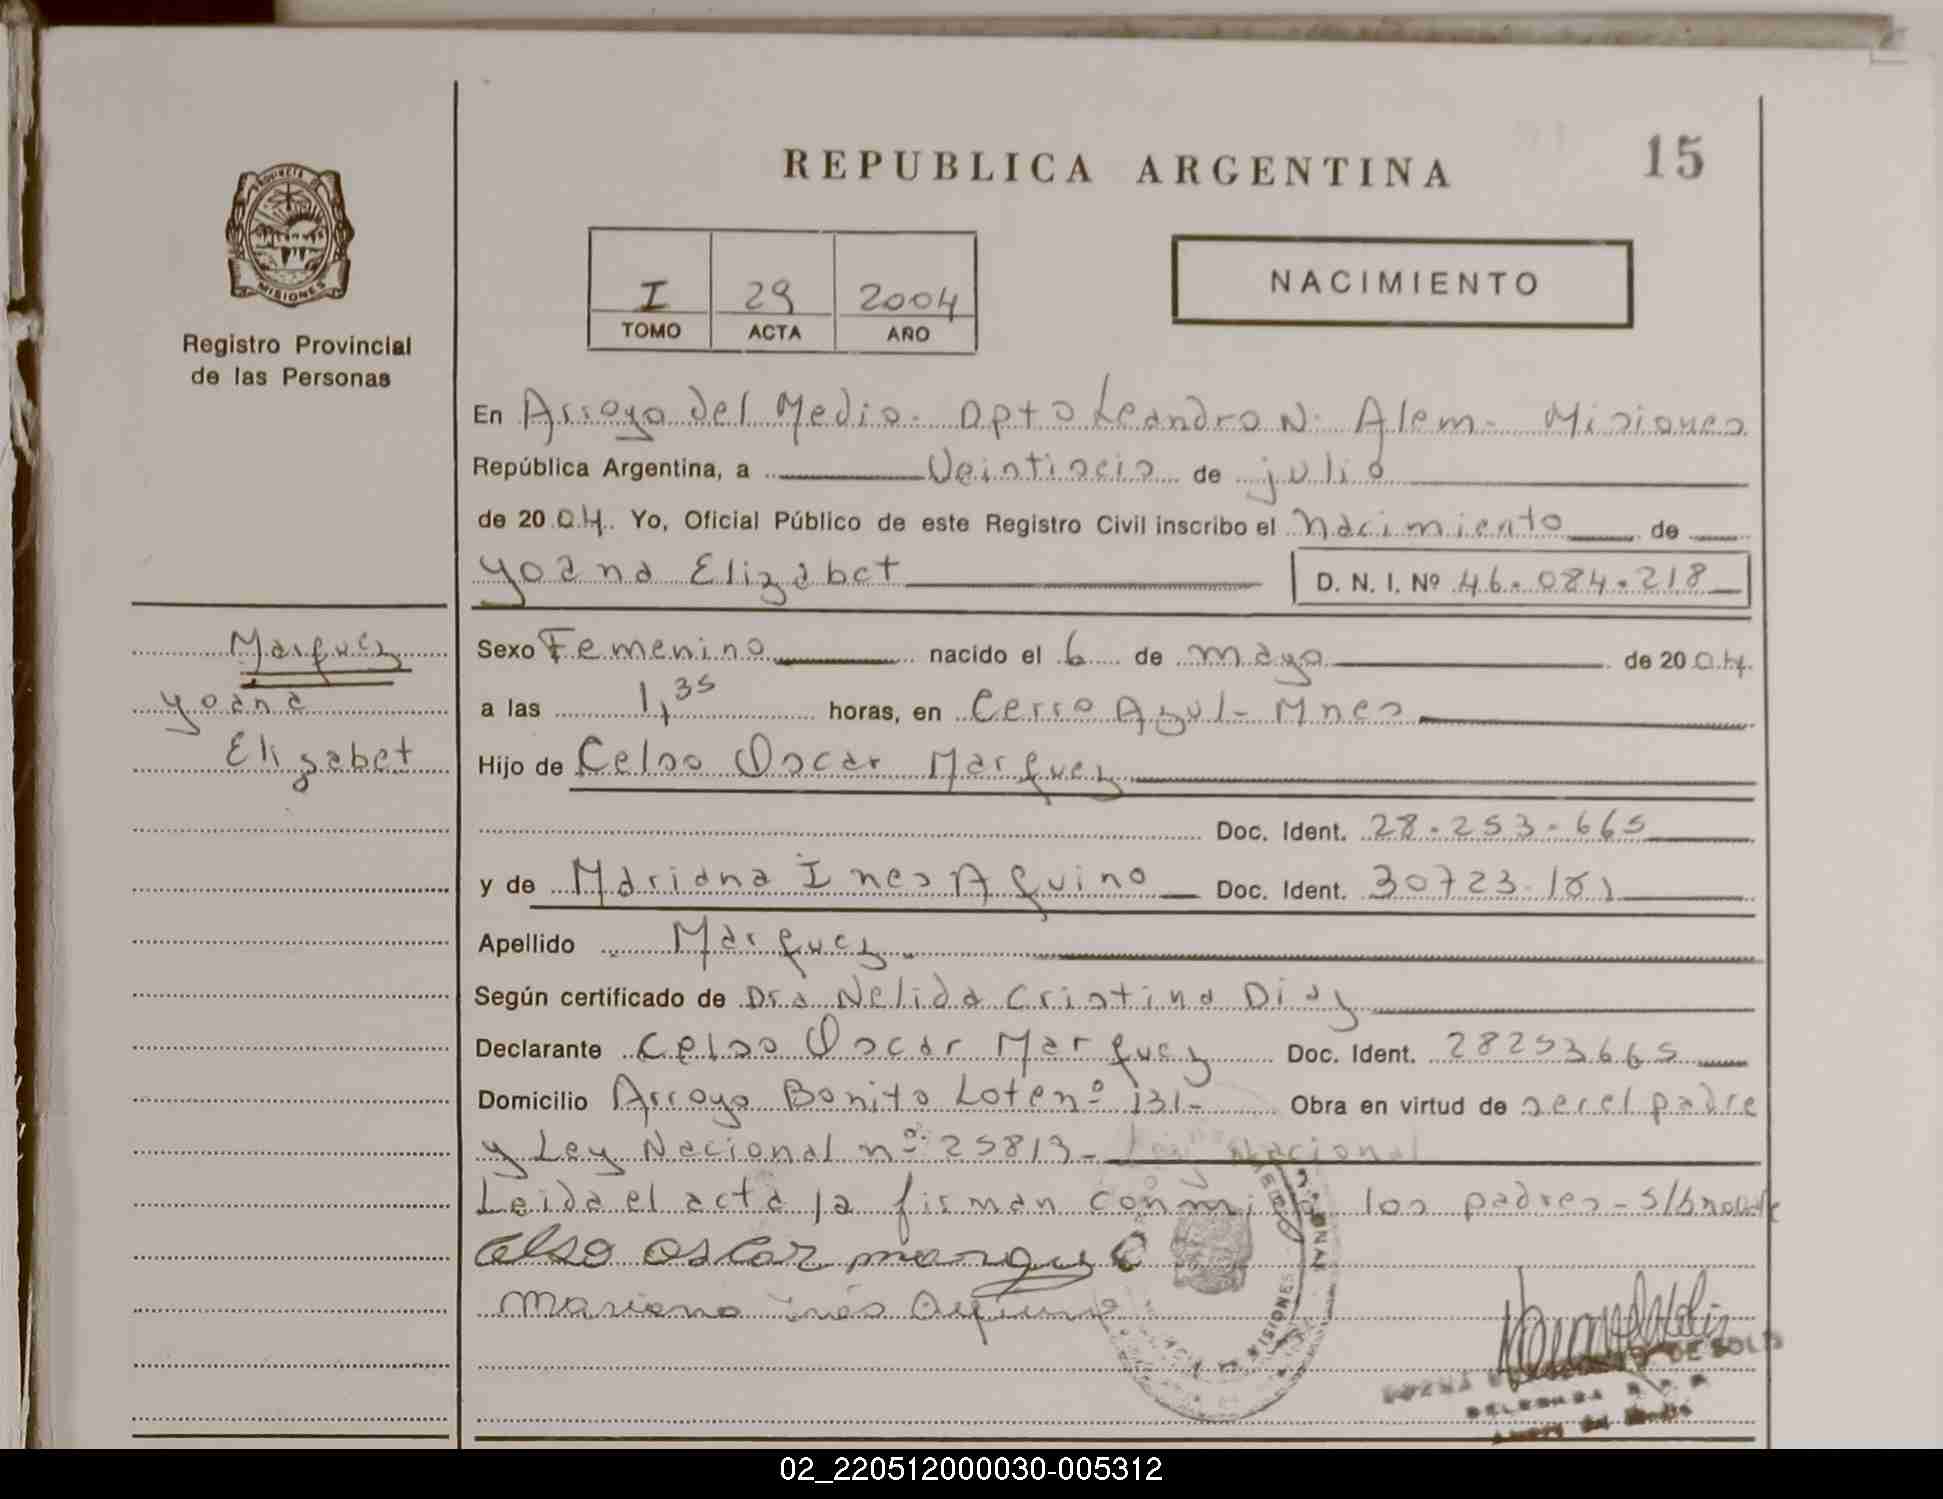 REPUBLICA ARGENTINA
15
PROVINCIA DE
MISIONES
Registro Provincial
de las Personas
I 29 2004
TOMO ACTA AÑO
NACIMIENTO
En Arroyo del Medio. Dpto Leandro N. Alem - Misiones
República Argentina, a Veintiseis de julio
de 20 04. Yo, Oficial Público de este Registro Civil inscribo el Nacimiento de
Yoana Elizabet D. N. I. Nº 46.084.218
Marquez
Yoana
Elizabet
Sexo Femenino nacido el 6 de mayo de 20 04.
a las 1,35 horas, en Cerro Azul - Mnes
Hijo de Celso Oscar Marquez
Doc. Ident. 28.253.665
y de Mariana Ines Aquino Doc. Ident. 30723.101
Apellido Marquez
Según certificado de Dra Nelida Cristina Diaz
Declarante Celso Oscar Marquez Doc. Ident. 28253665
Domicilio Arroyo Bonito Lote nº 131- Obra en virtud de ser el padre
y Ley Nacional nº 25813- Ley Nacional
Leida el acta la firman conmigo los padres -
Celso oscar marque
Mariana inés Aquino
MISIONES
DE SOLIS
DELEGADA
02_220512000030-005312